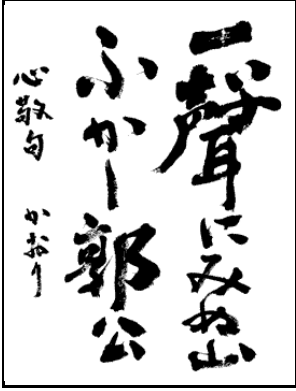 一聲にみぬ山
ふかし郭公
心敬句 かおり